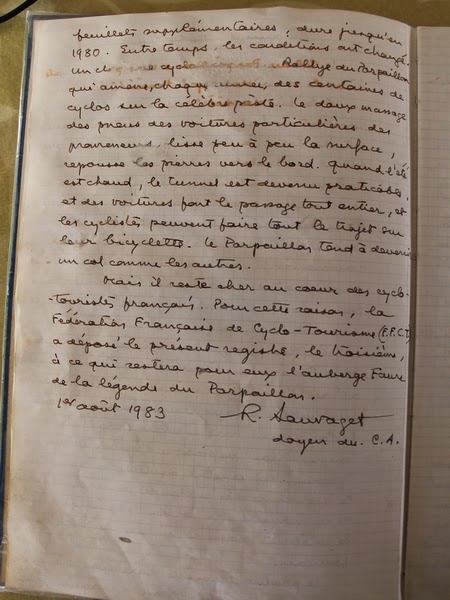 feuillets supplémentaires, dure jusqu'en
1980. Entre temps, les conditions ont changé.
un Rallye du Parpaillon
qui amène, chaque année, des centaines de
cyclos sur la célèbre piste. Le doux massage
des pneus des voitures particulières des
promeneurs, lisse peu à peu la surface,
repousse les pierres vers le bord. Quand l'été
est chaud, le tunnel est devenu praticable,
et des voitures font le passage tout entier, et
les cyclistes peuvent faire tout le trajet sur
leur bicyclette. Le Parpaillon tend à devenir
un col comme les autres.
Mais il reste cher au coeur des cyclo-
-Touristes français. Pour cette raison, la
Fédération Française de Cyclo-Tourisme (F.F.C.T)
a déposé le présent registre, le troisième,
à ce qui restera pour eux l'auberge Faure
de la légende du Parpaillon.
1er août 1983 R. Sauvaget
doyen du C.A.